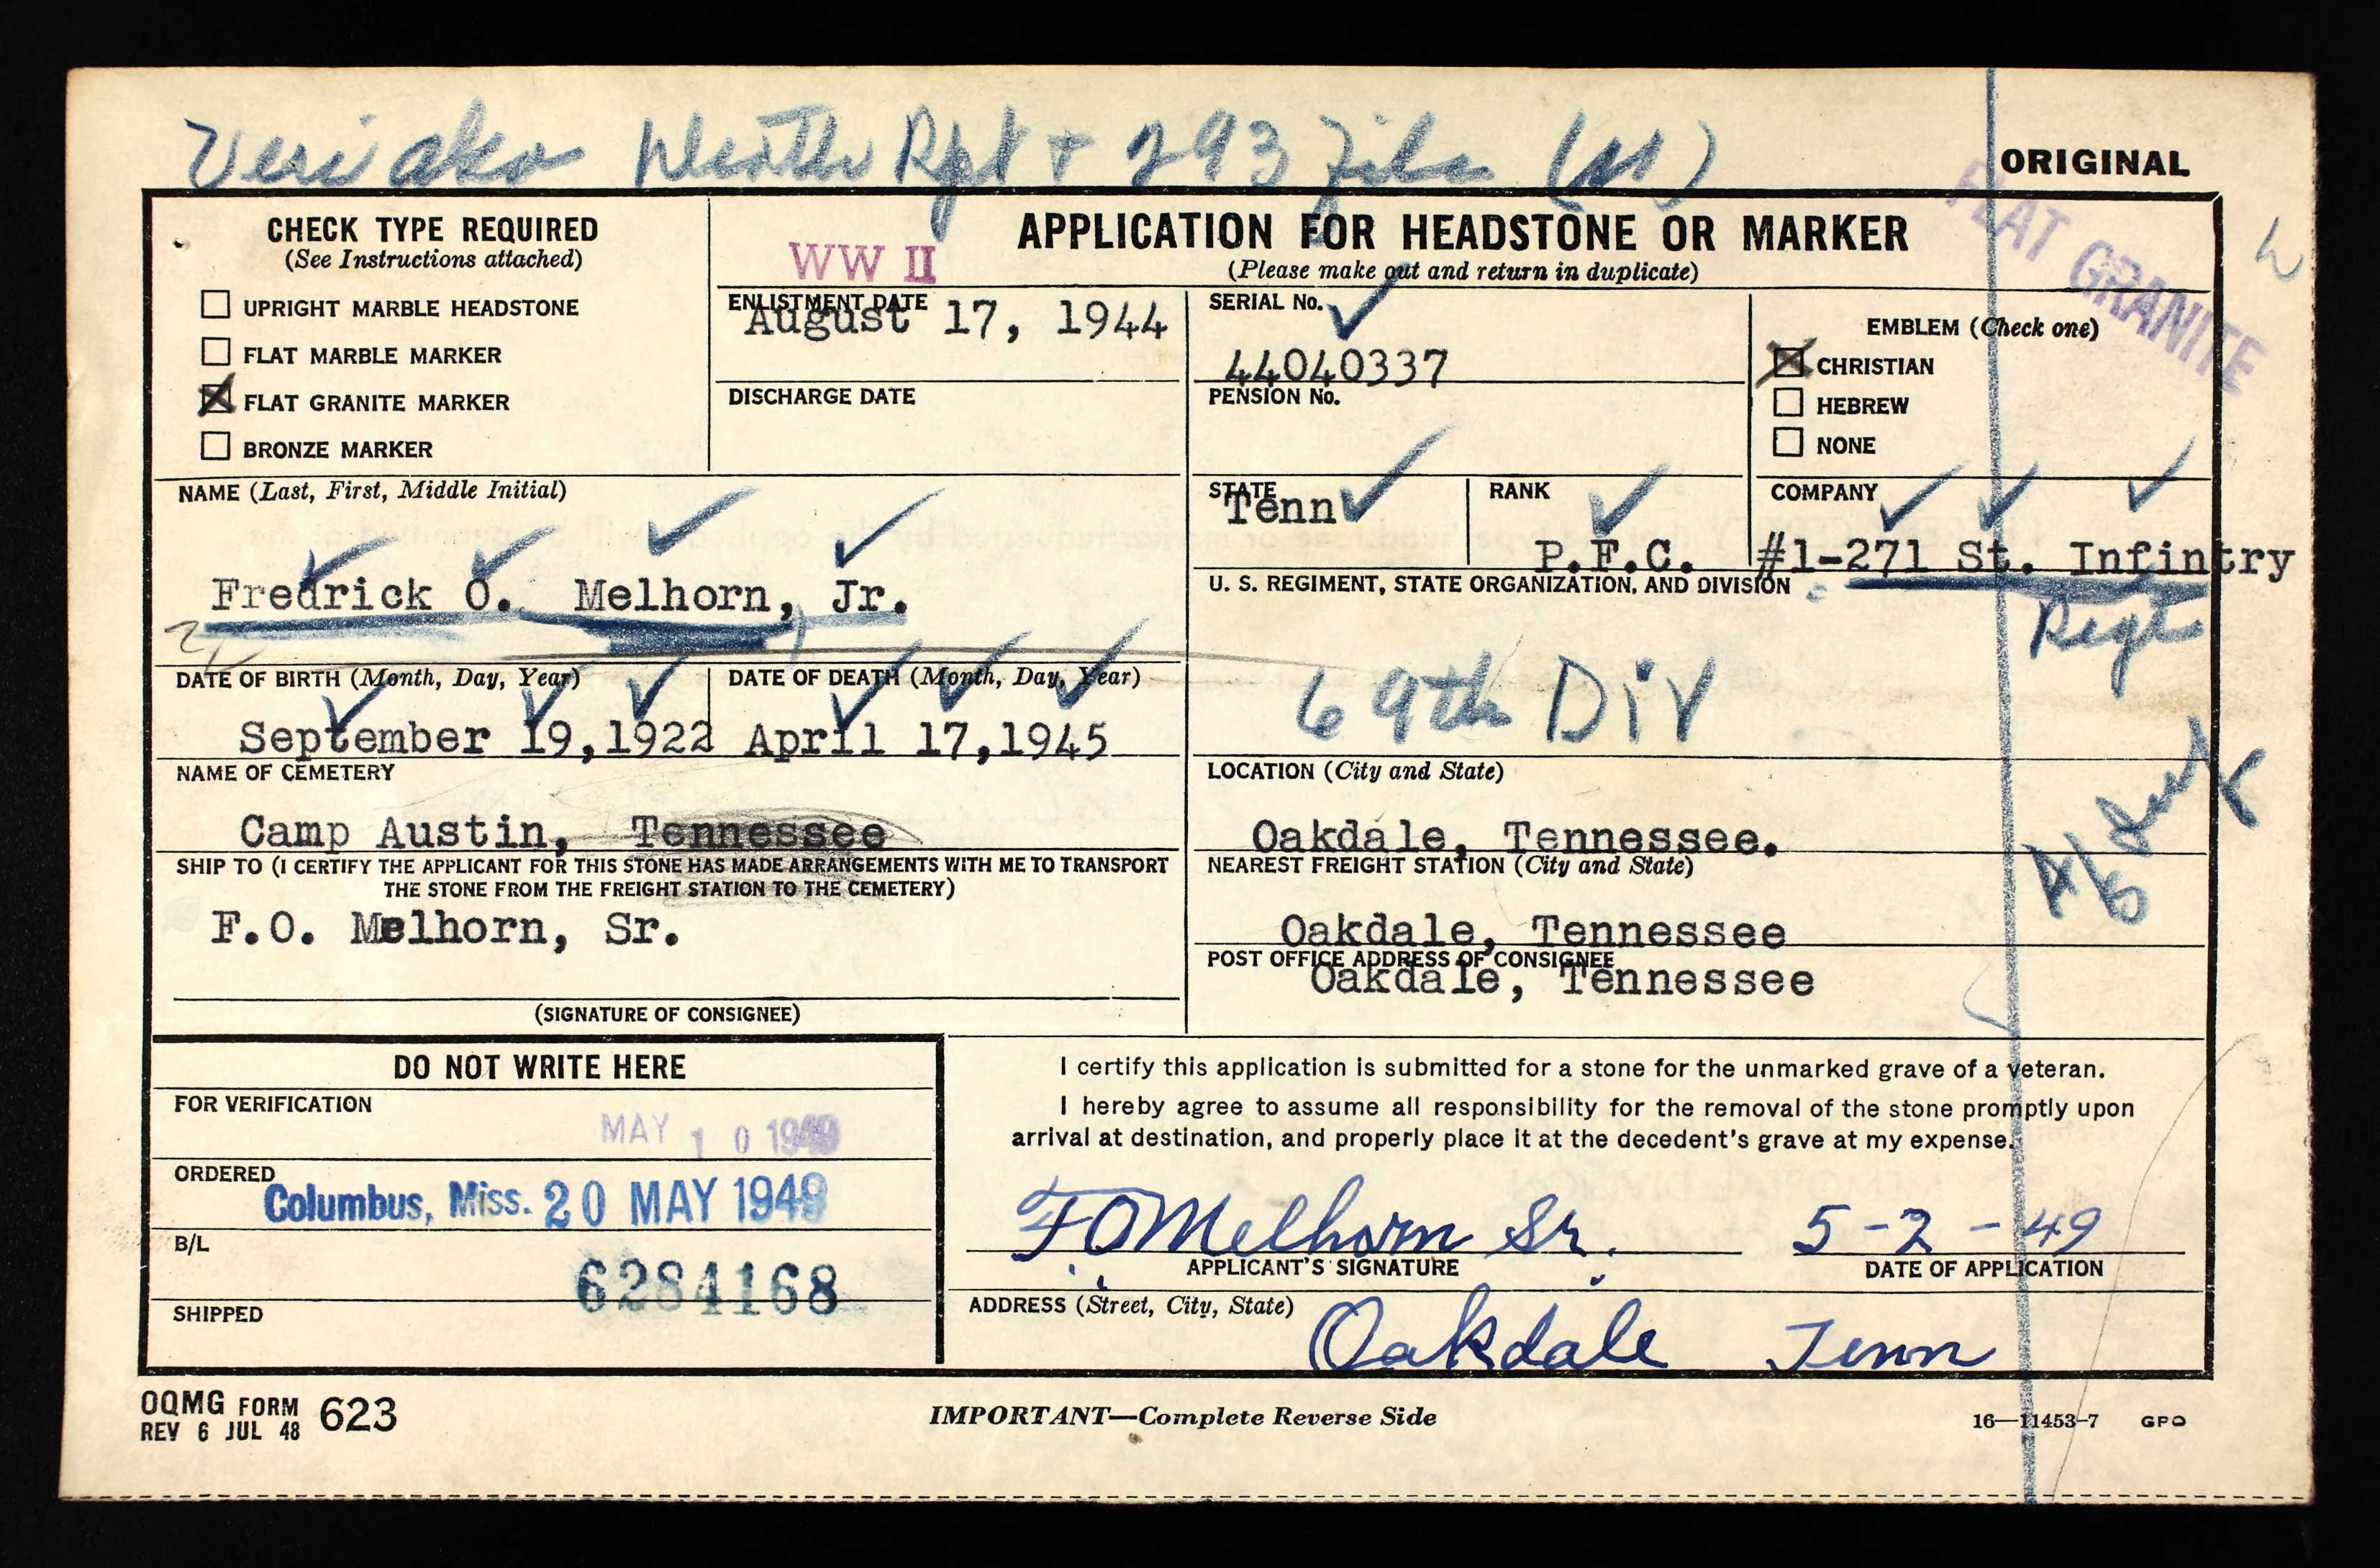 Veri also Death Rpt + 293 File (M)
ORIGINAL
FLAT GRANITE
CHECK TYPE REQUIRED
(See Instructions attached)
UPRIGHT MARBLE HEADSTONE
FLAT MARBLE MARKER
FLAT GRANITE MARKER
BRONZE MARKER
WW II
APPLICATION FOR HEADSTONE OR MARKER
(Please make out and return in duplicate)
ENLISTMENT DATE
August 17, 1944
DISCHARGE DATE
SERIAL No.
44040337
PENSION No.
EMBLEM (Check one)
CHRISTIAN
HEBREW
NONE
NAME (Last, First, Middle Initial)
Fredrick O. Melhorn, Jr.
STATE
Tenn
RANK
P.F.C.
COMPANY
#1-271 St. Infintry
Regt
U. S. REGIMENT, STATE ORGANIZATION, AND DIVISION
69th Div
DATE OF BIRTH (Month, Day, Year)
September 19,1922
DATE OF DEATH (Month, Day, Year)
April 17,1945
NAME OF CEMETERY
Camp Austin, Tennessee
LOCATION (City and State)
Oakdale, Tennessee.
SHIP TO (I CERTIFY THE APPLICANT FOR THIS STONE HAS MADE ARRANGEMENTS WITH ME TO TRANSPORT
THE STONE FROM THE FREIGHT STATION TO THE CEMETERY)
F.O. Melhorn, Sr.
(SIGNATURE OF CONSIGNEE)
NEAREST FREIGHT STATION (City and State)
Oakdale, Tennessee
POST OFFICE ADDRESS OF CONSIGNEE
Oakdale, Tennessee
DO NOT WRITE HERE
FOR VERIFICATION
MAY 10 1949
ORDERED
Columbus, Miss. 20 MAY 1949
B/L
6284168
SHIPPED
I certify this application is submitted for a stone for the unmarked grave of a veteran.
I hereby agree to assume all responsibility for the removal of the stone promptly upon
arrival at destination, and properly place it at the decedent's grave at my expense.
F O Melhorn Sr.
5-2-49
APPLICANT'S SIGNATURE
DATE OF APPLICATION
ADDRESS (Street, City, State)
Oakdale Tenn
OQMG FORM 623
REV 6 JUL 48
IMPORTANT—Complete Reverse Side
16—11453-7 GPO